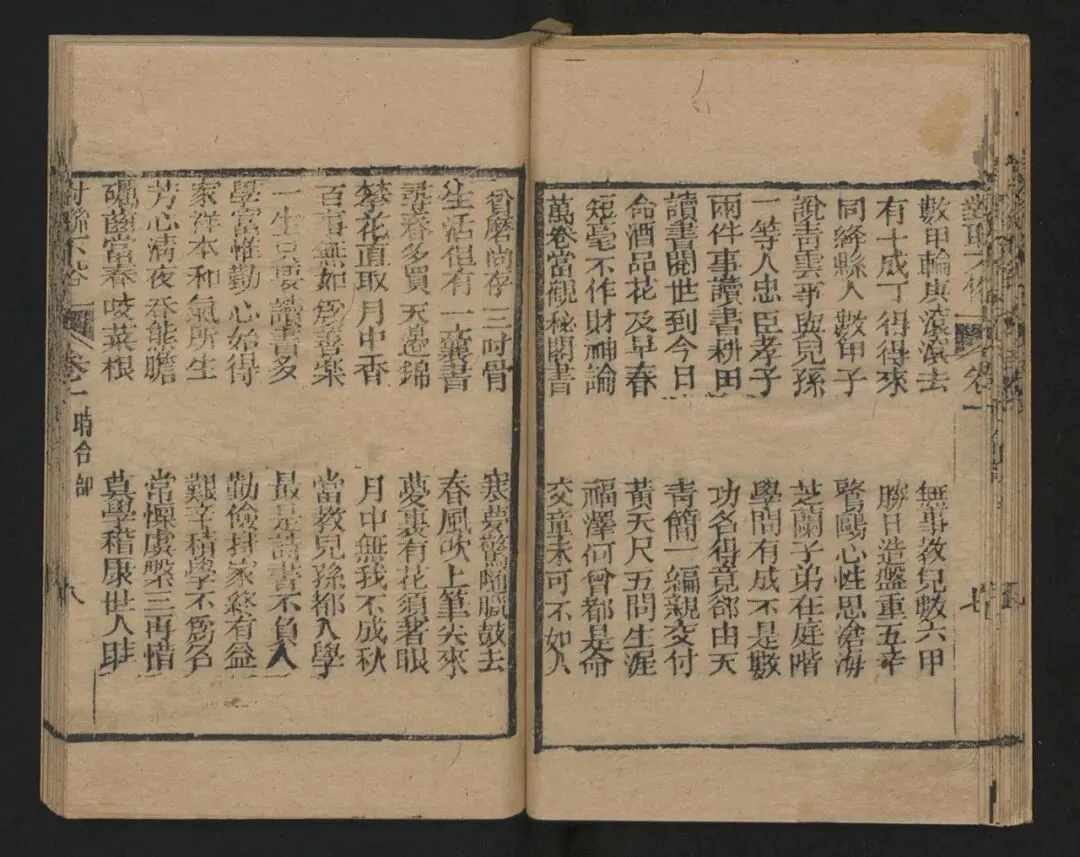 數甲輪庚滾滾去 無事教兒數六甲
有十成丁得得來 勝日造盤重五辛
同絳縣人數甲子 鷗心性思滄海
說青雲事與兒孫 芝蘭子弟在庭階
一等人忠臣孝子 學問有成不是數
兩件事讀書耕田 功名得竟卻由天
讀書閱世到今日 青簡一編親交付
命酒品花及早春 黃天尺五問生涯
短毫不作財神論 福澤何曾都是命
萬卷當觀秘閣書 交童未可不如人
磨尚存三吋骨 寒夢驚隨臘鼓去
生活但有一囊書 春風吹上筆尖來
尋春多買天邊錦 夢裏有花須著眼
攀花直取月中香 月中無我不成秋
百事無如為善樂 當教兒孫都入學
一生只要讀書多 最是詩書不負人
學富惟勤心始得 勤儉持家終有益
家祥本和氣所生 艱辛積學不為名
芳心清夜吞能膽 常懍虞槃三再惜
礪齒當春咬菜根 莫學稽康世人
卷一 時令部 八